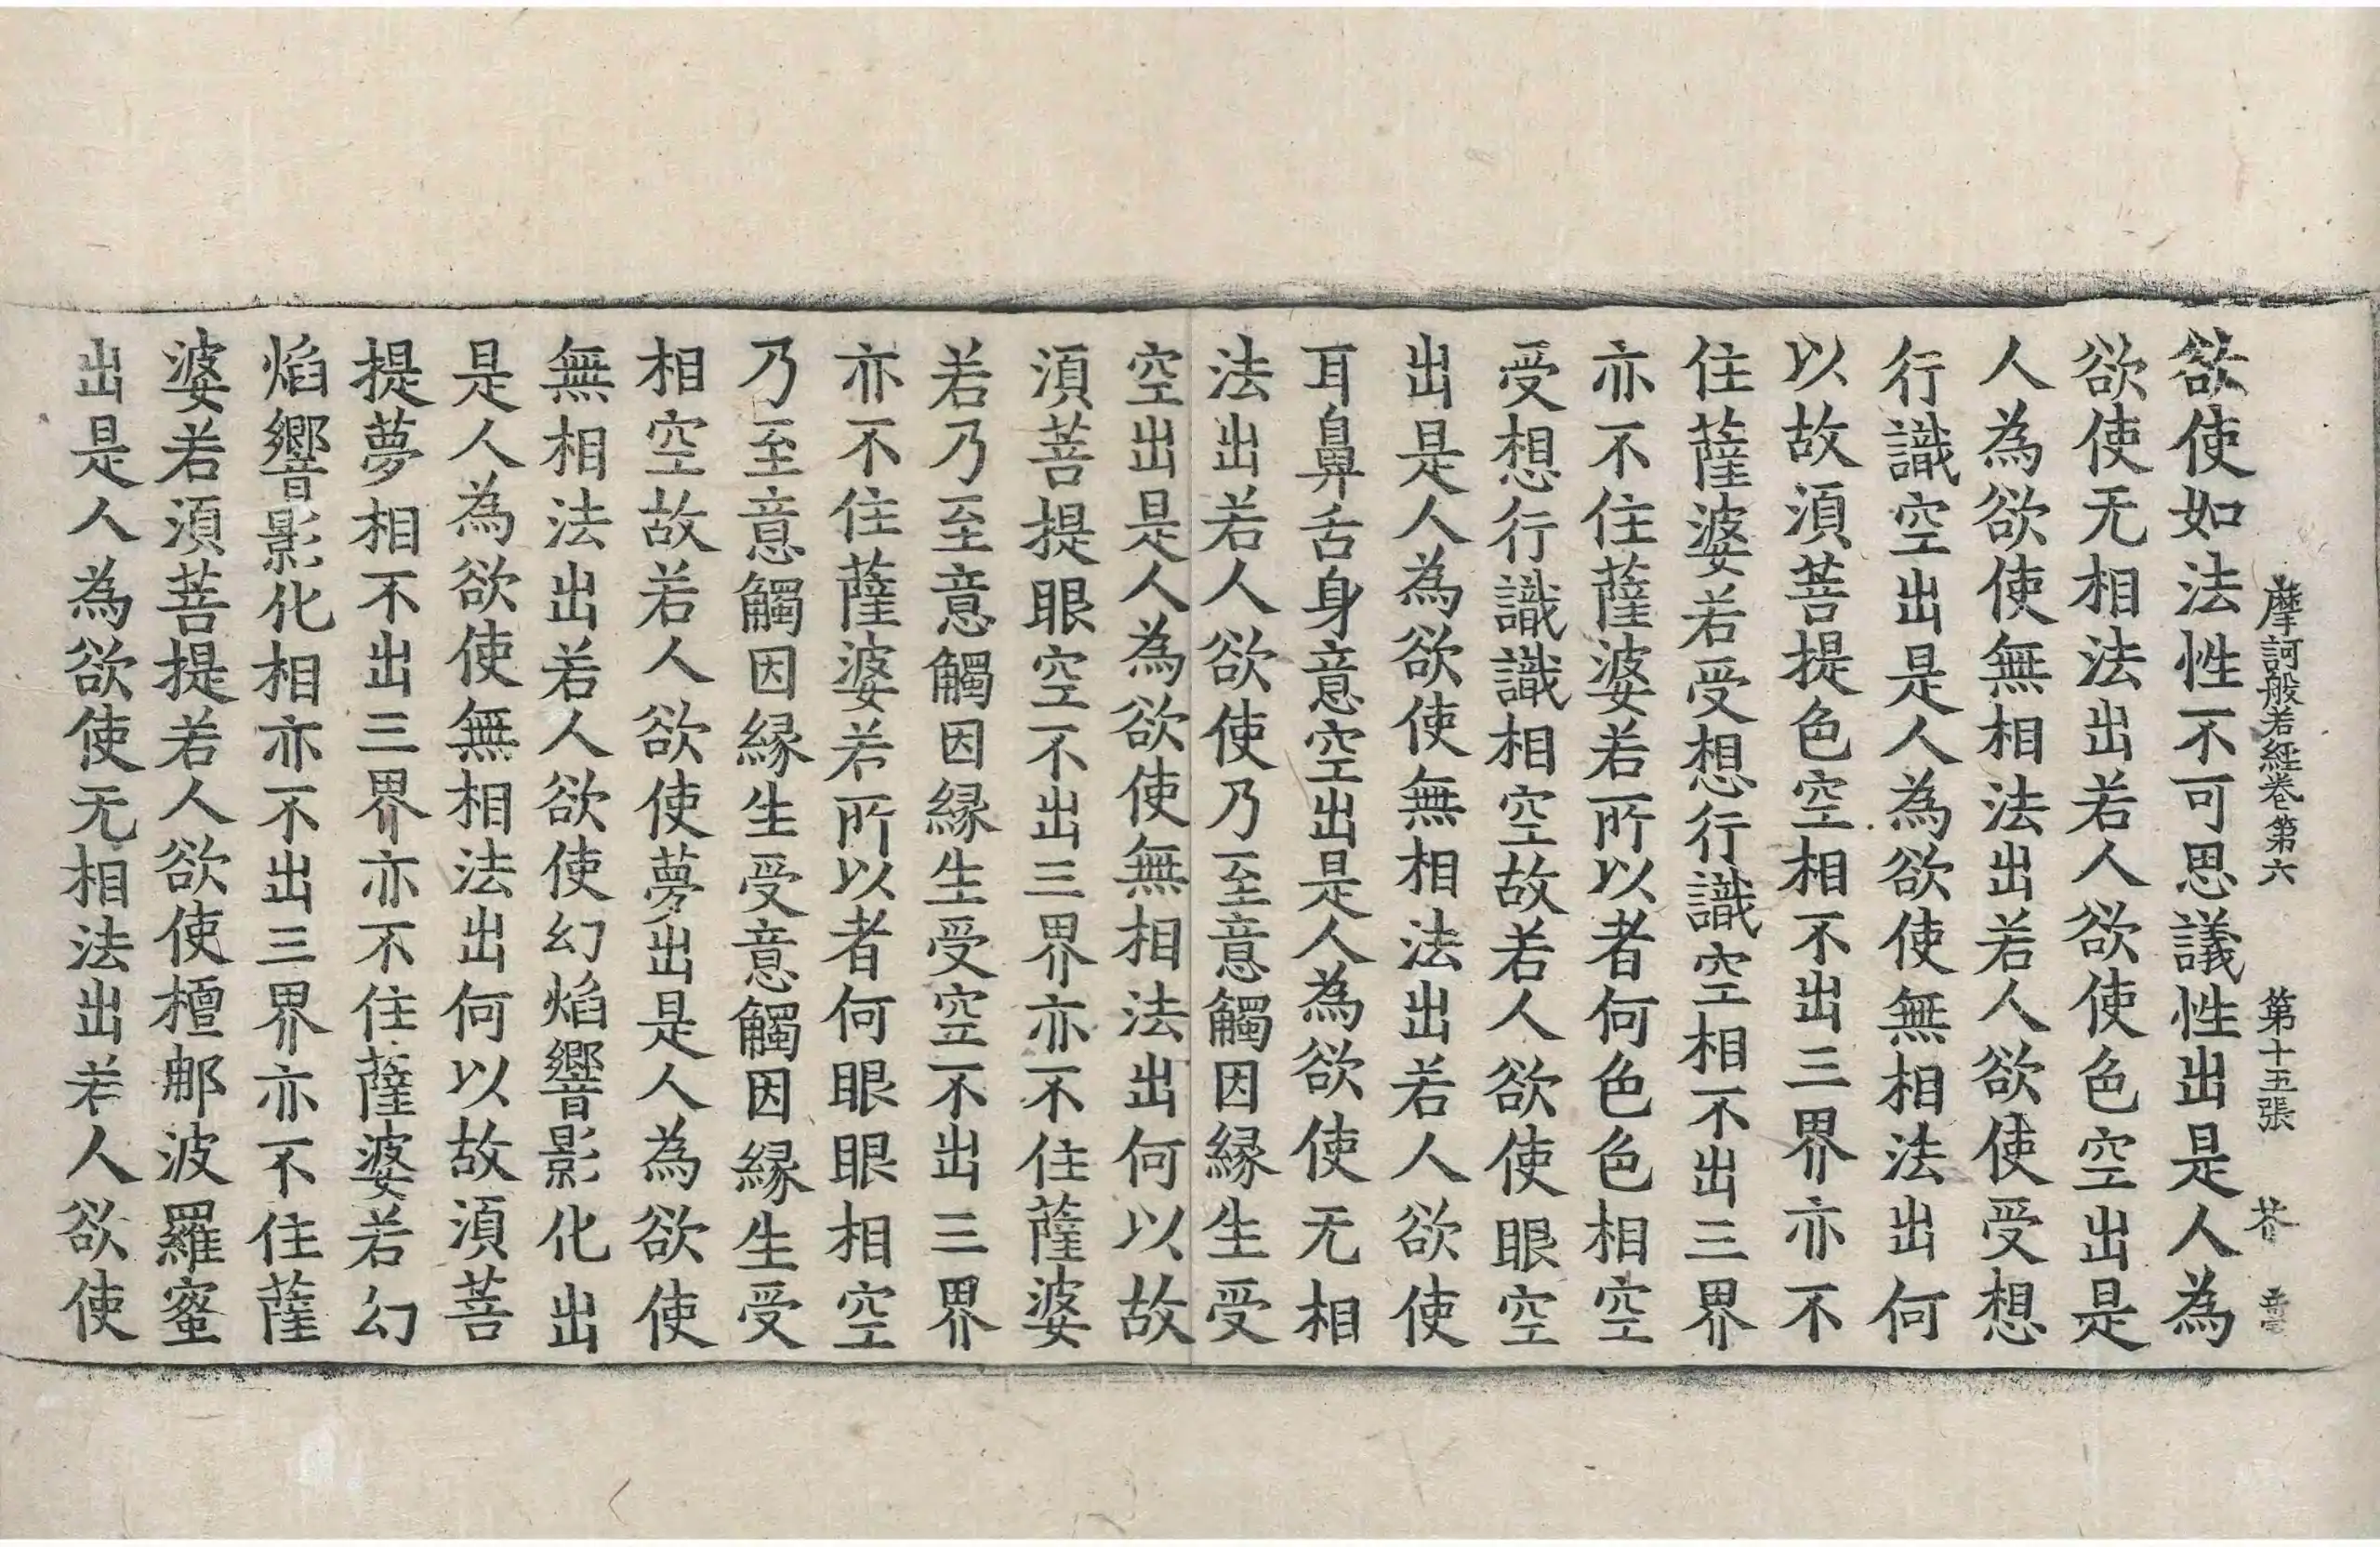 摩訶般若經卷第六 第十五張 芥
欲使如法性不可思議性出是人為
欲使无相法出若人欲使色空出是
人為欲使無相法出若人欲使受想
行識空出是人為欲使無相法出何
以故須菩提色空相不出三界亦不
住薩婆若受想行識空相不出三界
亦不住薩婆若所以者何色色相空
受想行識識相空故若人欲使眼空
出是人為欲使無相法出若人欲使
耳鼻舌身意空出是人為欲使无相
法出若人欲使乃至意觸因緣生受
空出是人為欲使無相法出何以故
須菩提眼空不出三界亦不住薩婆
若乃至意觸因緣生受空不出三界
亦不住薩婆若所以者何眼眼相空
乃至意觸因緣生受意觸因緣生受
相空故若人欲使夢出是人為欲使
無相法出若人欲使幻焰響影化出
是人為欲使無相法出何以故須菩
提夢相不出三界亦不住薩婆若幻
焰響影化相亦不出三界亦不住薩
婆若須菩提若人欲使檀那波羅蜜
出是人為欲使无相法出若人欲使